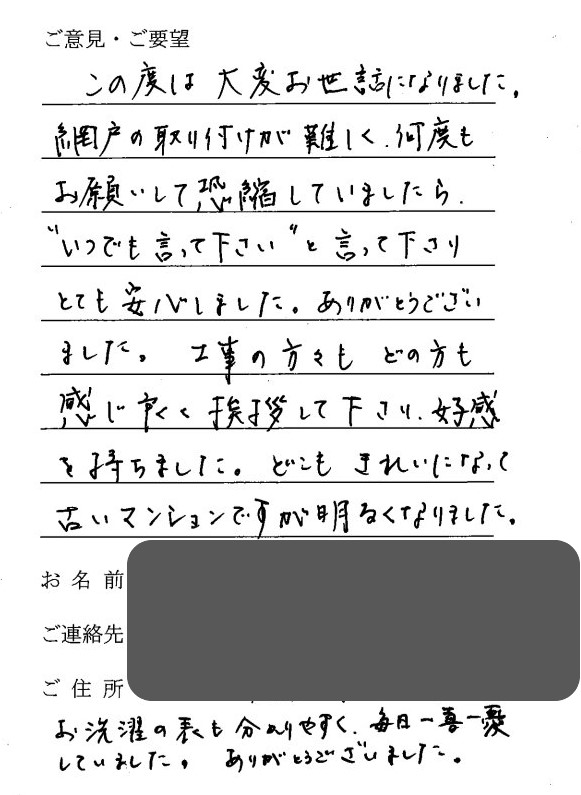 ご意見・ご要望
この度は 大変お世話になりました。
網戸の取り付けが難しく、何度も
お願いして恐縮していましたら、
"いつでも言って下さい"と言って下さり
とても安心しました。ありがとうござい
ました。 工事の方々も どの方も
感じ良く挨拶して下さり、好感
を持ちました。どこも きれいになって
古いマンションですが明るくなりました。
お名前
ご連絡先
ご住所
お洗濯の表も分かりやすく、毎日一喜一憂
していました。 ありがとうございました。